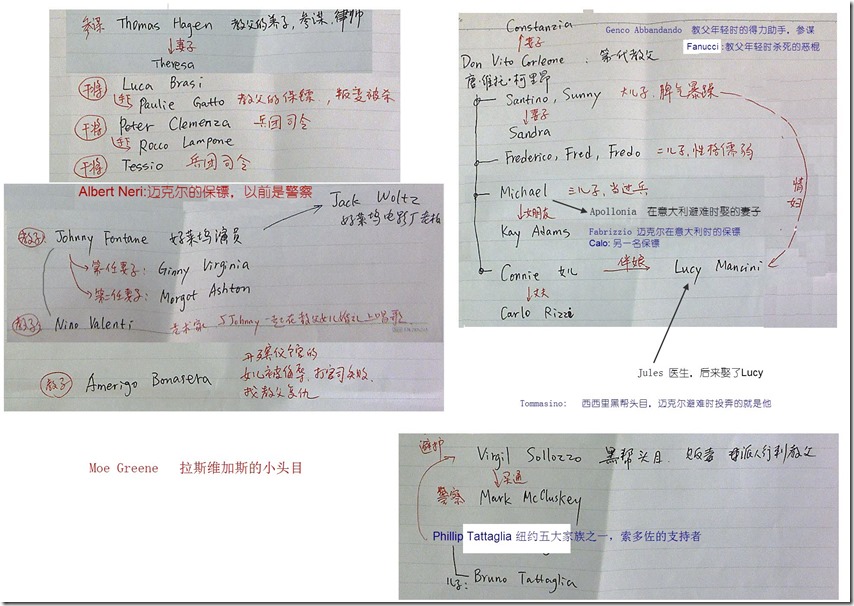 参谋 Thomas Hagen 教父的养子，参谋，律师
妻子
Theresa
干将 Luca Brasi
Paulie Gatto 教父的保镖，叛变被杀
干将 Peter Clemenza 兵团司令
Rocco Lampone
干将 Tessio 兵团司令
Albert Neri:迈克尔的保镖，以前是警察
Jack Woltz
好莱坞电影厂老板
教子 Johnny Fontane 好莱坞演员
第一任妻子: Ginny Virginia
第二任妻子: Margot Ashton
教子 Nino Valenti 与Johnny一起在教父女儿婚礼上唱歌
教子 Amerigo Bonasera
开殡仪馆的
女儿被侮辱，打官司失败，
找教父复仇
Moe Greene 拉斯维加斯的小头目
Constanzia
妻子
Genco Abbandando 教父年轻时的得力助手，参谋
Fanucci:教父年轻时杀死的恶棍
Don Vito Corleone. 第一代教父
唐·维托·柯里昂
Santino, Sunny 大儿子，脾气暴躁
妻子
Sandra
Frederico, Fred, Fredo 二儿子，性格懦弱
Michael 三儿子，当过兵
女朋友
Apollonia 在意大利避难时娶的妻子
Kay Adams
Fabrizzio 迈克尔在意大利时的保镖
Calo: 另一名保镖
情妇
Connie 女儿 伴娘 Lucy Mancini
丈夫
Carlo Rizzi
Jules 医生，后来娶了Lucy
Tommasino: 西西里黑帮头目，迈克尔避难时投奔的就是他
Virgil Sollozzo 黑帮头目 贩毒 派人行刺教父
买通
警察 Mark McCluskey
Phillip Tattaglia 纽约五大家族之一，索多佐的支持者
儿子: Bruno Tattaglia